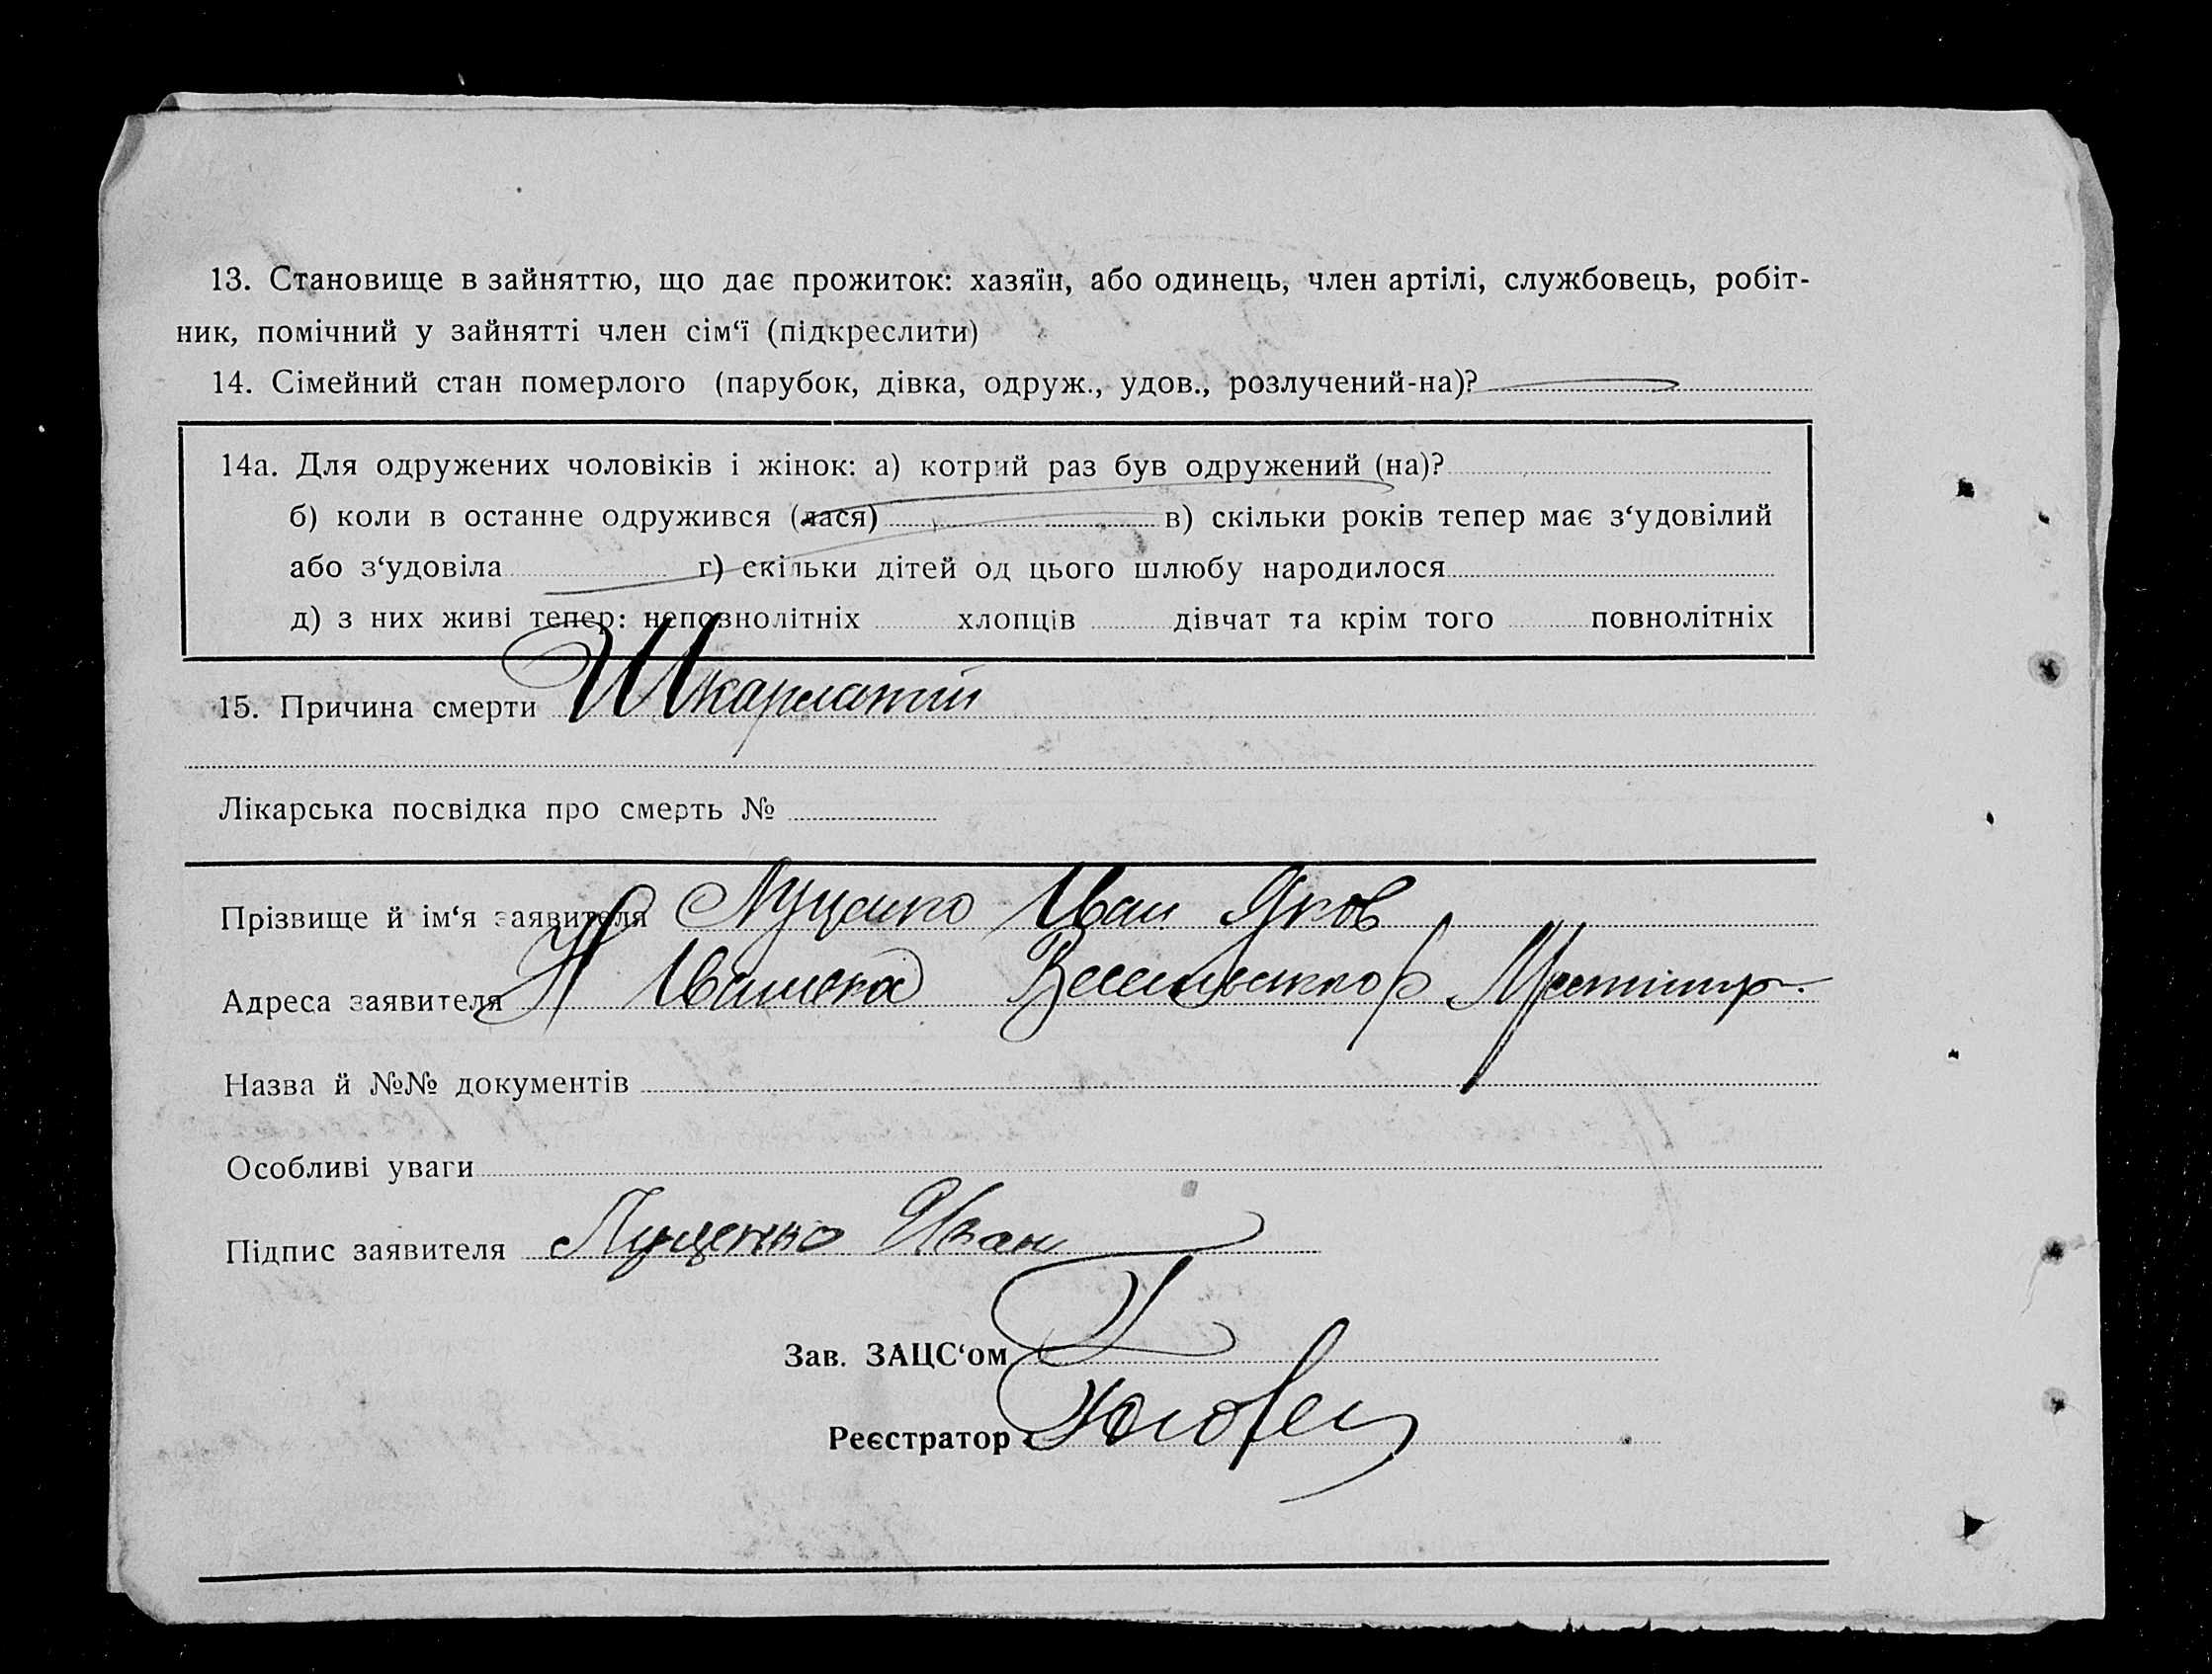 13. Становище в зайняттю, що дає прожиток: хазяїн, або одинець, член артілі, службовець, робіт-
ник, помічний у зайнятті член сім‘ї (підкреслити)
14. Сімейний стан померлого (парубок, дівка, одруж., удов., розлучений-на)?
14а. Для одружених чоловіків і жінок: а) котрий раз був одружений (на)?
б) коли в останне одружився (лася) в) скільки років тепер має з‘удовілий
або з‘удовіла г) скільки дітей од цього шлюбу народилося
д) з них живі тепер: неповнолітніх хлопців дівчат та крім того повнолітніх
15. Причина смерти Шкарлатин
Лікарська посвідка про смерть №
Прізвище й ім‘я заявителя Луценко Иван Яков
Адреса заявителя
Назва й №№ документів
Особливі уваги
Підпис заявителя Луценко Иван
Зав. ЗАЦС‘ом
Реєстратор